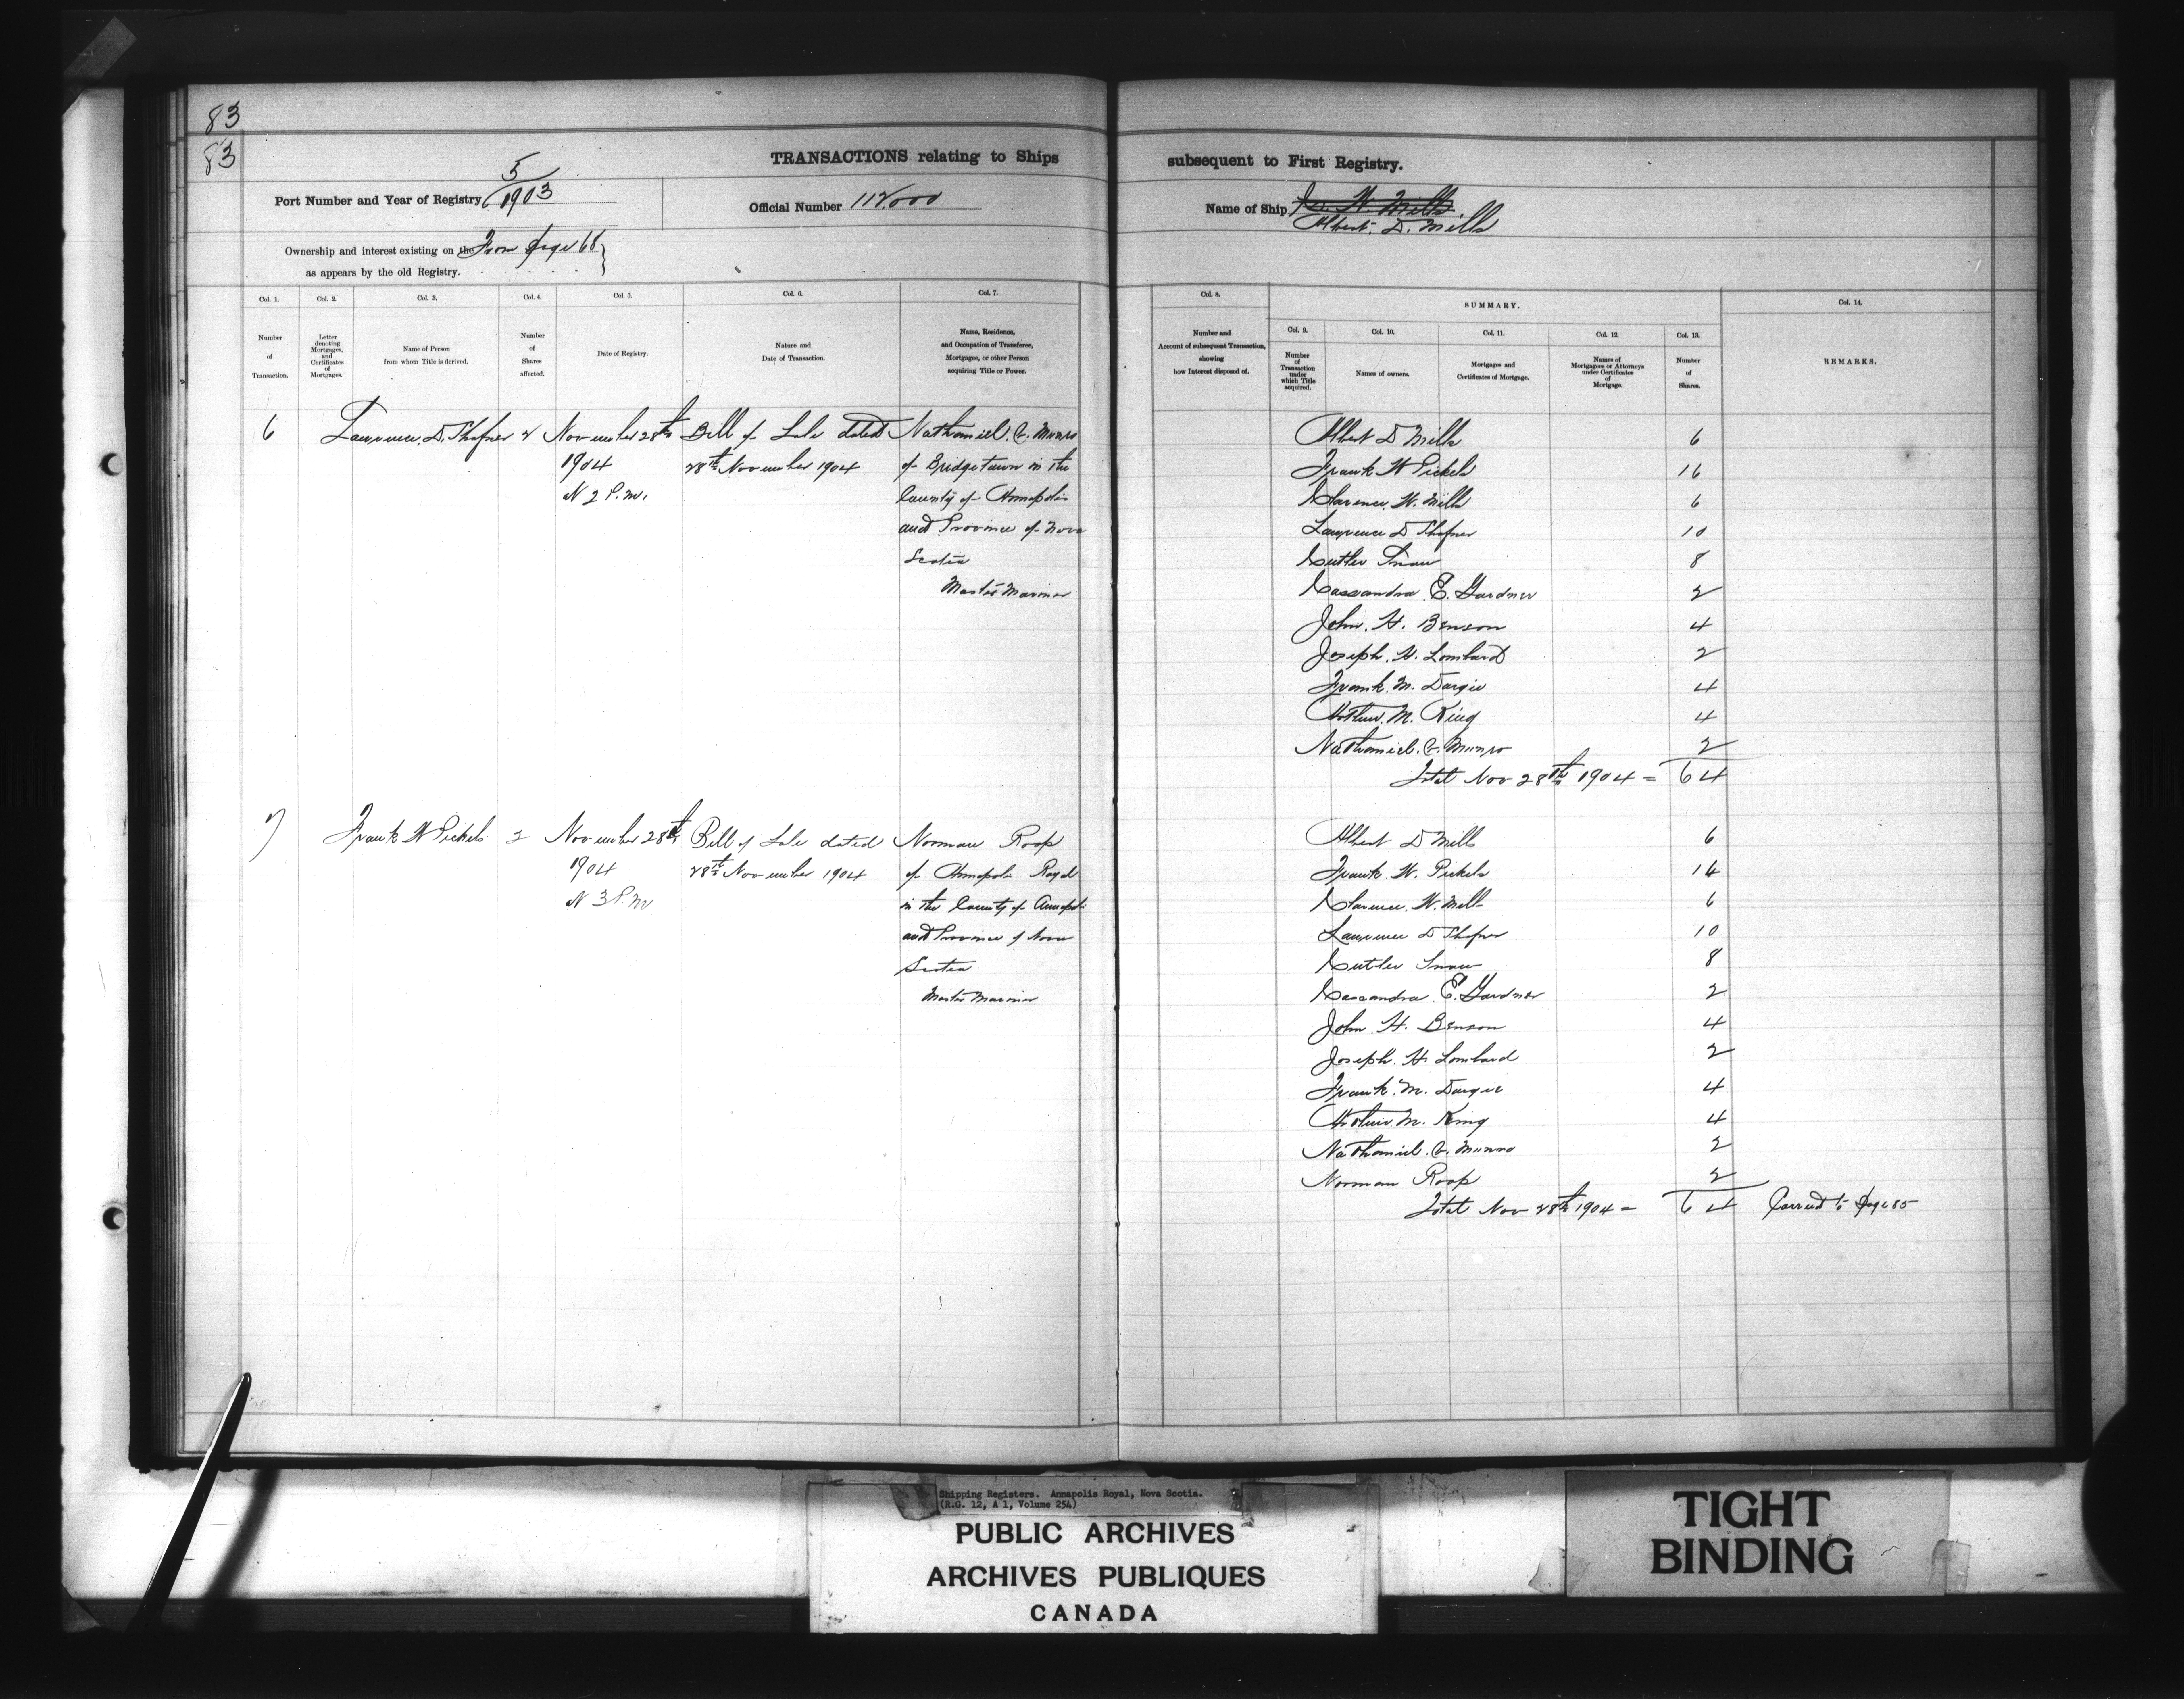 83
83
TRANSACTIONS relating to Ships subsequent to First Registry.
Port Number and Year of Registry 5/1903
Official Number 112,000
Name of Ship
Albert. D. Mills
Ownership and interest existing on the From page 68
as appears by the old Registry.
Col. 1. Col. 2. Col. 3. Col. 4. Col. 5. Col. 6. Col. 7. Col. 8. SUMMARY. Col. 14.
Col. 9. Col. 10. Col. 11. Col. 12. Col. 13.
Number of Transaction.
Letter denoting Mortgages, and Certificates of Mortgages.
Name of Person from whom Title is derived.
Number of Shares affected.
Date of Registry.
Nature and Date of Transaction.
Name, Residence, and Occupation of Transferee, Mortgagee, or other Person acquiring Title or Power.
Number and Account of subsequent Transaction, showing how Interest disposed of.
Number of Transaction under which Title acquired.
Names of owners.
Mortgages and Certificates of Mortgage.
Names of Mortgagees or Attorneys under Certificates of Mortgage.
Number of Shares.
REMARKS.
6 Lawrence. D. Shafner 2 November 28th Bill of Sale dated Nathaniel. C. Munro
1904 28th November 1904 of Bridgetown in the
At 2 P.m. County of Annapolis
and Province of Nova
Scotia
Master Mariner
Albert D Mills 6
Frank W Pickels 16
Clarence. W. Mills 6
Lawrence D Shafner 10
Cutler Snow 8
Cassandra E. Gardner 2
John. H. Benson 4
Joseph. H. Lombard 2
Frank. M. Dargie 4
Arthur. M. King 4
Nathaniel. C. Munro 2
Total Nov 28th 1904 = 64
7 Frank W Pickels 2 November 28th Bill of Sale dated Norman Roop
1904 28th November 1904 of Annapolis Royal
At 3 P.M in the County of Annapolis
and Province of Nova
Scotia
Master Mariner
Albert D Mills 6
Frank. W. Pickels 14
Clarence. W. Mills 6
Lawrence D Shafner 10
Cutler Snow 8
Cassandra E. Gardner 2
John. H. Benson 4
Joseph. H. Lombard 2
Frank. M. Dargie 4
Arthur. M. King 4
Nathaniel. C. Munro 2
Norman Roop 2
Total Nov 28th 1904 = 64 Carried to page 85
Shipping Registers. Annapolis Royal, Nova Scotia.
(R.G. 12, A 1, Volume 254)
PUBLIC ARCHIVES
ARCHIVES PUBLIQUES
CANADA
TIGHT
BINDING